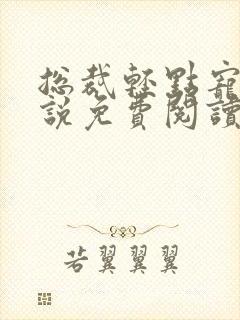 總裁輕點寵
說免費閱讀
若翼翼翼